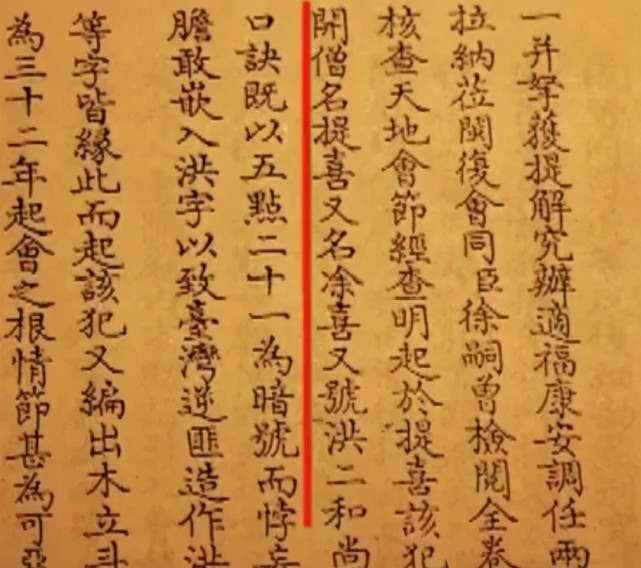 一并拏獲提解究辦適福康安調任兩
拉納蒞閩復會同臣徐嗣曾檢閱全卷
核查天地會節經查明起於提喜該犯
開僧名提喜又名凃喜又號洪二和尚
口訣既以五點二十一為暗號而悖妄
膽敢嵌入洪字以致臺灣逆匪造作洪
等字皆緣此而起該犯又編出木立斗
為三十二年起會之根情節甚為可惡